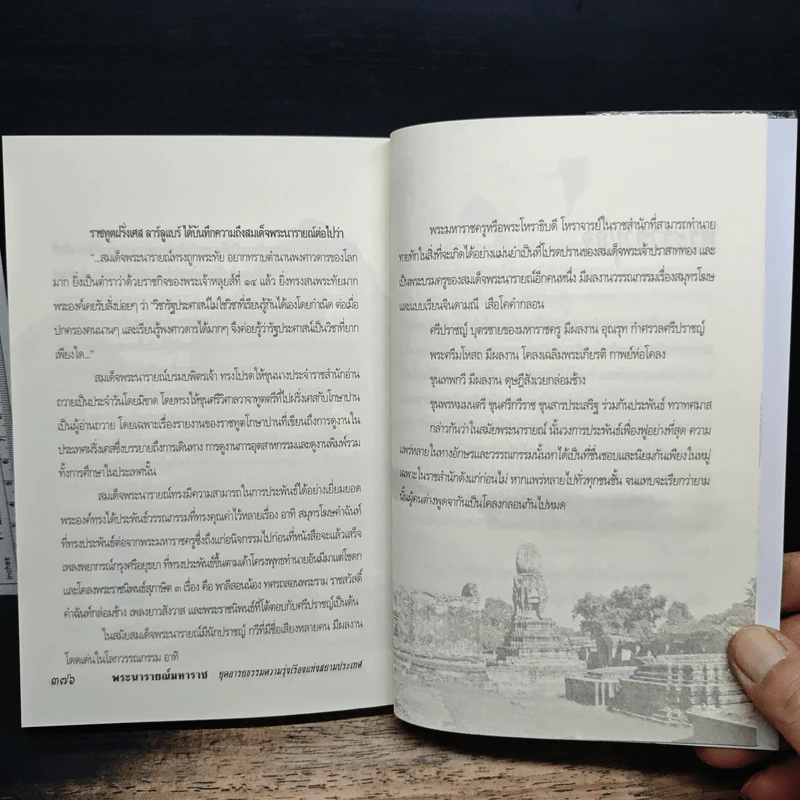 ราชทูตฝรั่งเศส ลาร์ลูแบร์ ได้บันทึกความถึงสมเด็จพระนารายณ์ต่อไปว่า
"...สมเด็จพระนารายณ์ทรงถูกพระทัย อยากทราบตำนานพงศาวดารของโลก
มาก ยิ่งเป็นตำราว่าด้วยราชกิจของพระเจ้าหลุยส์ที่ ๑๔ แล้ว ยิ่งทรงสนพระทัยมาก
พระองค์เคยรับสั่งบ่อยๆ ว่า "วิชารัฐประศาสน์ไม่ใช่วิชาที่เรียนรู้กันได้เองโดยกำเนิด ต่อเมื่อ
ปกครองคนนานๆ และเรียนรู้พงศาวดารได้มากๆ จึงค่อยรู้ว่ารัฐประศาสน์เป็นวิชาที่ยาก
เพียงใด..."
สมเด็จพระนารายณ์บรมบพิตรเจ้า ทรงโปรดให้ขุนนางประจำราชสำนักอ่าน
ถวายเป็นประจำวันโดยมิขาด โดยทรงให้ขุนศรีวิศาลวาจาทูตตรีที่ไปฝรั่งเศสกับโกษาปาน
เป็นผู้อ่านถวาย โดยเฉพาะเรื่องรายงานของราชทูตโกษาปานที่เขียนถึงการดูงานใน
ประเทศฝรั่งเศสซึ่งบรรยายถึงการเดินทาง การดูงานการอุตสาหกรรมและดูงานพิมพ์รวม
ทั้งการศึกษาในประเทศนั้น
สมเด็จพระนารายณ์ทรงมีความสามารถในการประพันธ์ได้อย่างเยี่ยมยอด
พระองค์ทรงได้ประพันธ์วรรณกรรมที่ทรงคุณค่าไว้หลายเรื่อง อาทิ สมุทรโฆษคำฉันท์
ที่ทรงประพันธ์ต่อจากพระมหาราชครูซึ่งถึงแก่อนิจกรรมไปก่อนที่หนังสือจะแล้วเสร็จ
เพลงพยากรณ์กรุงศรีอยุธยา ที่ทรงประพันธ์ขึ้นตามเค้าโครงพุทธทำนายอันมีมาแต่โชดก
และโคลงพระราชนิพนธ์สุภาษิต ๓ เรื่อง คือ พาลีสอนน้อง ทศรถสอนพระราม ราชสวัสดิ์
คำฉันท์กล่อมช้าง เพลงยาวสังวาส และพระราชนิพนธ์ที่โต้ตอบกับศรีปราชญ์เป็นต้น
ในสมัยสมเด็จพระนารายณ์มีนักปราชญ์ กวีที่มีชื่อเสียงหลายคน มีผลงาน
โดดเด่นในโลกวรรณกรรม อาทิ
๓๗๖ พระนารายณ์มหาราช ยุคอารยธรรมความรุ่งเรืองแห่งสยามประเทศ
พระมหาราชครูหรือพระโหราธิบดี โหราจารย์ในราชสำนักที่สามารถทำนาย
ทายทักในสิ่งที่จะเกิดได้อย่างแม่นยำเป็นที่โปรดปรานของสมเด็จพระเจ้าปราสาททอง และ
เป็นพระบรมครูของสมเด็จพระนารายณ์อีกคนหนึ่ง มีผลงานวรรณกรรมเรื่องสมุทรโฆษ
และแบบเรียนจินดามณี เสือโคคำกลอน
ศรีปราชญ์ บุตรชายของมหาราชครู มีผลงาน อุณรุท กำศรวลศรีปราชญ์
พระศรีมโหสถ มีผลงาน โคลงเฉลิมพระเกียรติ กาพย์ห่อโคลง
ขุนเทพกวี มีผลงาน ดุษฎีสังเวยกล่อมช้าง
ขุนพรหมมนตรี ขุนศรีกวีราช ขุนสารประเสริฐ ร่วมกันประพันธ์ ทวาทศมาส
กล่าวกันว่าในสมัยพระนารายณ์ นั้นวงการประพันธ์เฟื่องฟูอย่างที่สุด ความ
แพร่หลายในทางอักษรและวรรณกรรมนั้นหาได้เป็นที่ชื่นชอบและนิยมกันเพียงในหมู่
เฉพาะในราชสำนักดังแก่ก่อนไม่ หากแพร่หลายไปทั่วทุกชนชั้น จนแทบจะเรียกว่ายาม
นั้นผู้คนต่างพูดจากันเป็นโคลงกลอนกันไปหมด